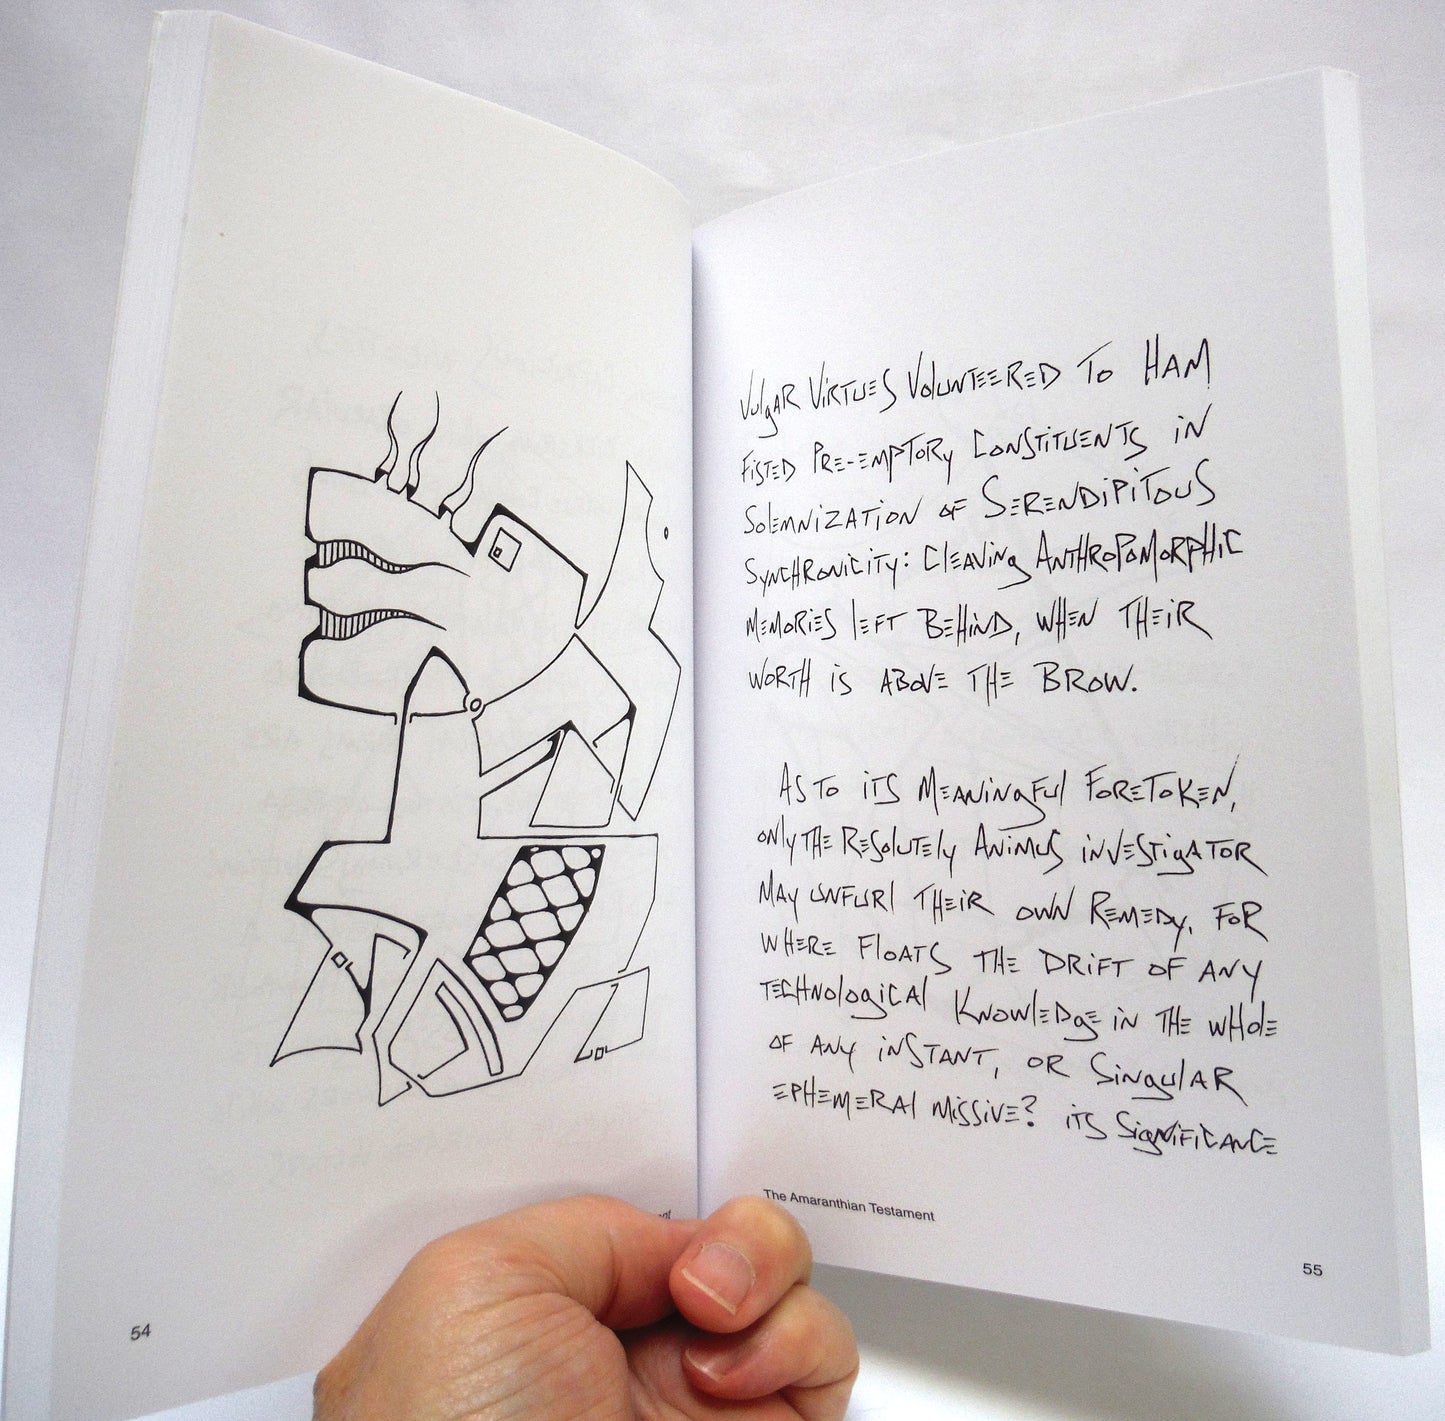 54
Vulgar Virtues Volunteered To Ham
Fisted Pre-emptory Constituents in
Solemnization of Serendipitous
Synchronicity: Cleaving Anthropomorphic
Memories left Behind, when Their
worth is above the Brow.
As to its Meaningful Foretoken,
only the Resolutely Animus investigator
May unfurl Their own Remedy. For
where Floats the Drift of any
Technological Knowledge in the whole
of any instant, or Singular
ephemeral missive? its Significance
The Amaranthian Testament
55